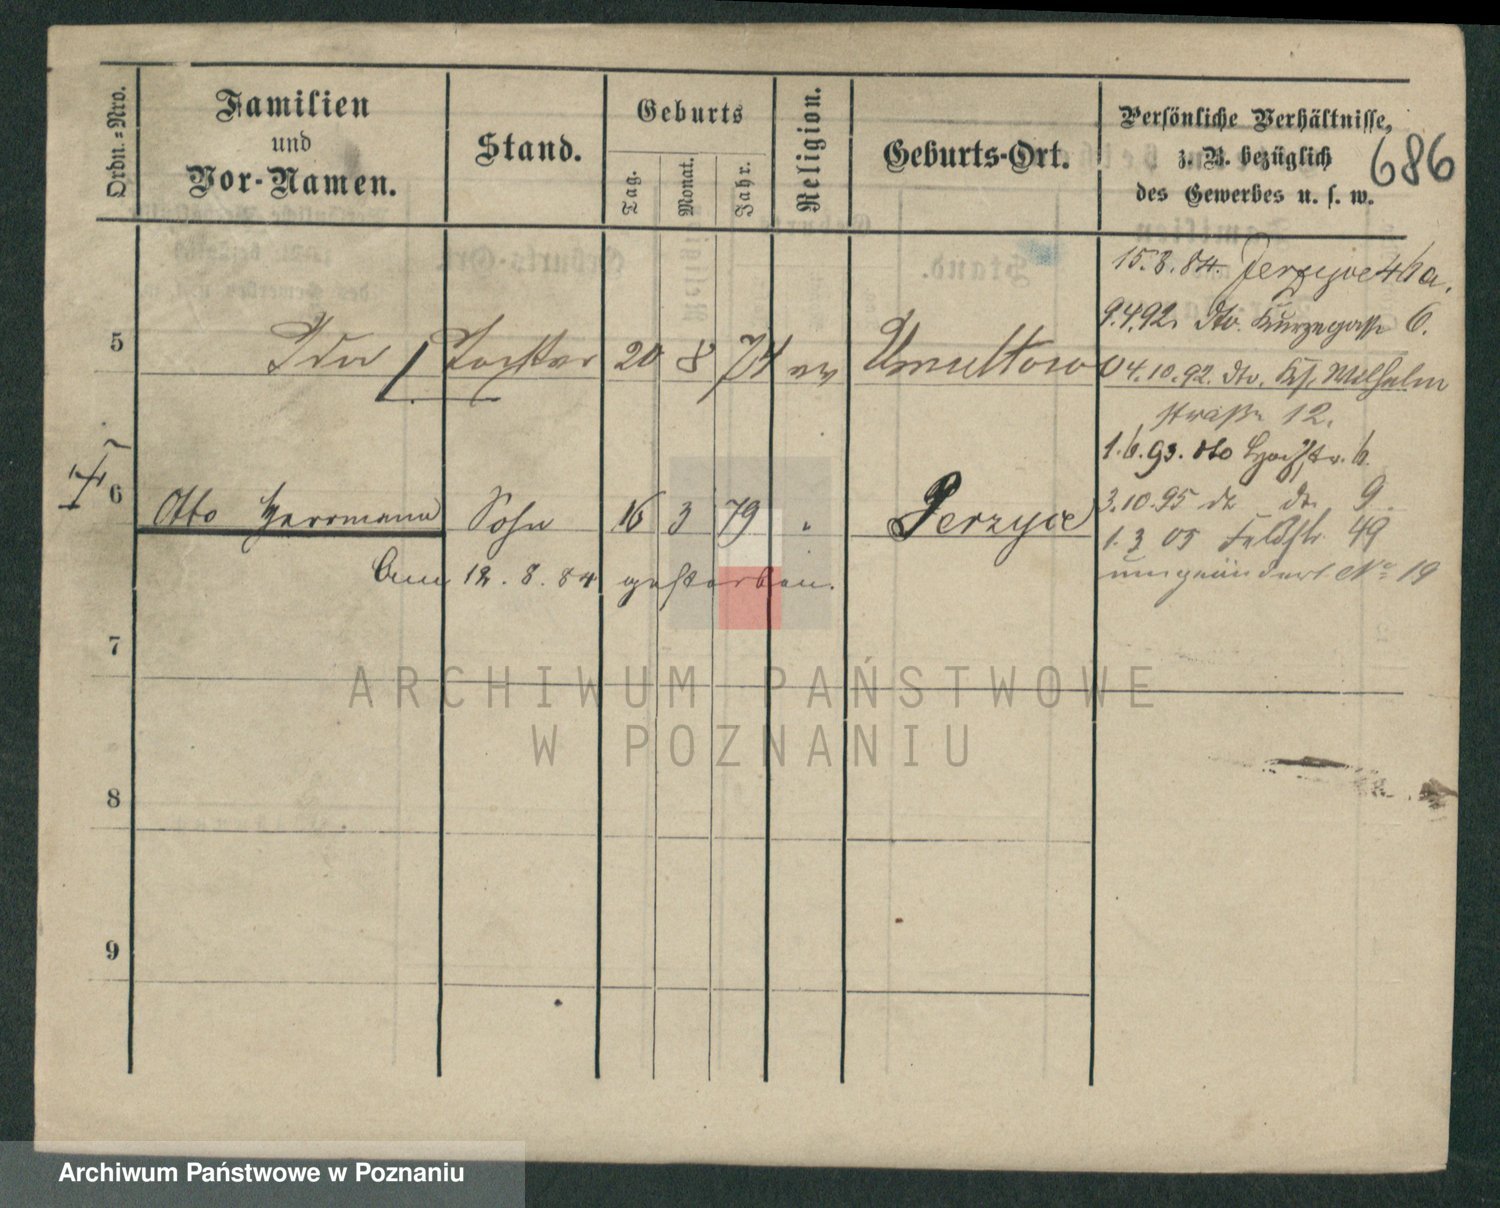 Ordn.=Nro.
Familien
und
Vor-Namen.
Stand.
Geburts
Tag.
Monat.
Jahr.
Religion.
Geburts-Ort.
Persönliche Verhältnisse,
z. B. bezüglich
des Gewerbes u. s. w.
686
15.8.84. Jerzyce 46a.
9.4.92. dto. Kurzegasse 6.
5 Ida Tochter 20 8 74 ev Umultowo
4.10.92. dto. Wilhelm
straße 12.
1.6.93. dto Hochstr. 6.
6 Otto Herrmann Sohn 16 3 79 " Jerzyce
3.10.95 dto dto 9
1.3 05 Feldstr. 49
Am 12.8.84 gestorben.
umgeändert No 19
7
8
9
ARCHIWUM PAŃSTWOWE
W POZNANIU
Archiwum Państwowe w Poznaniu